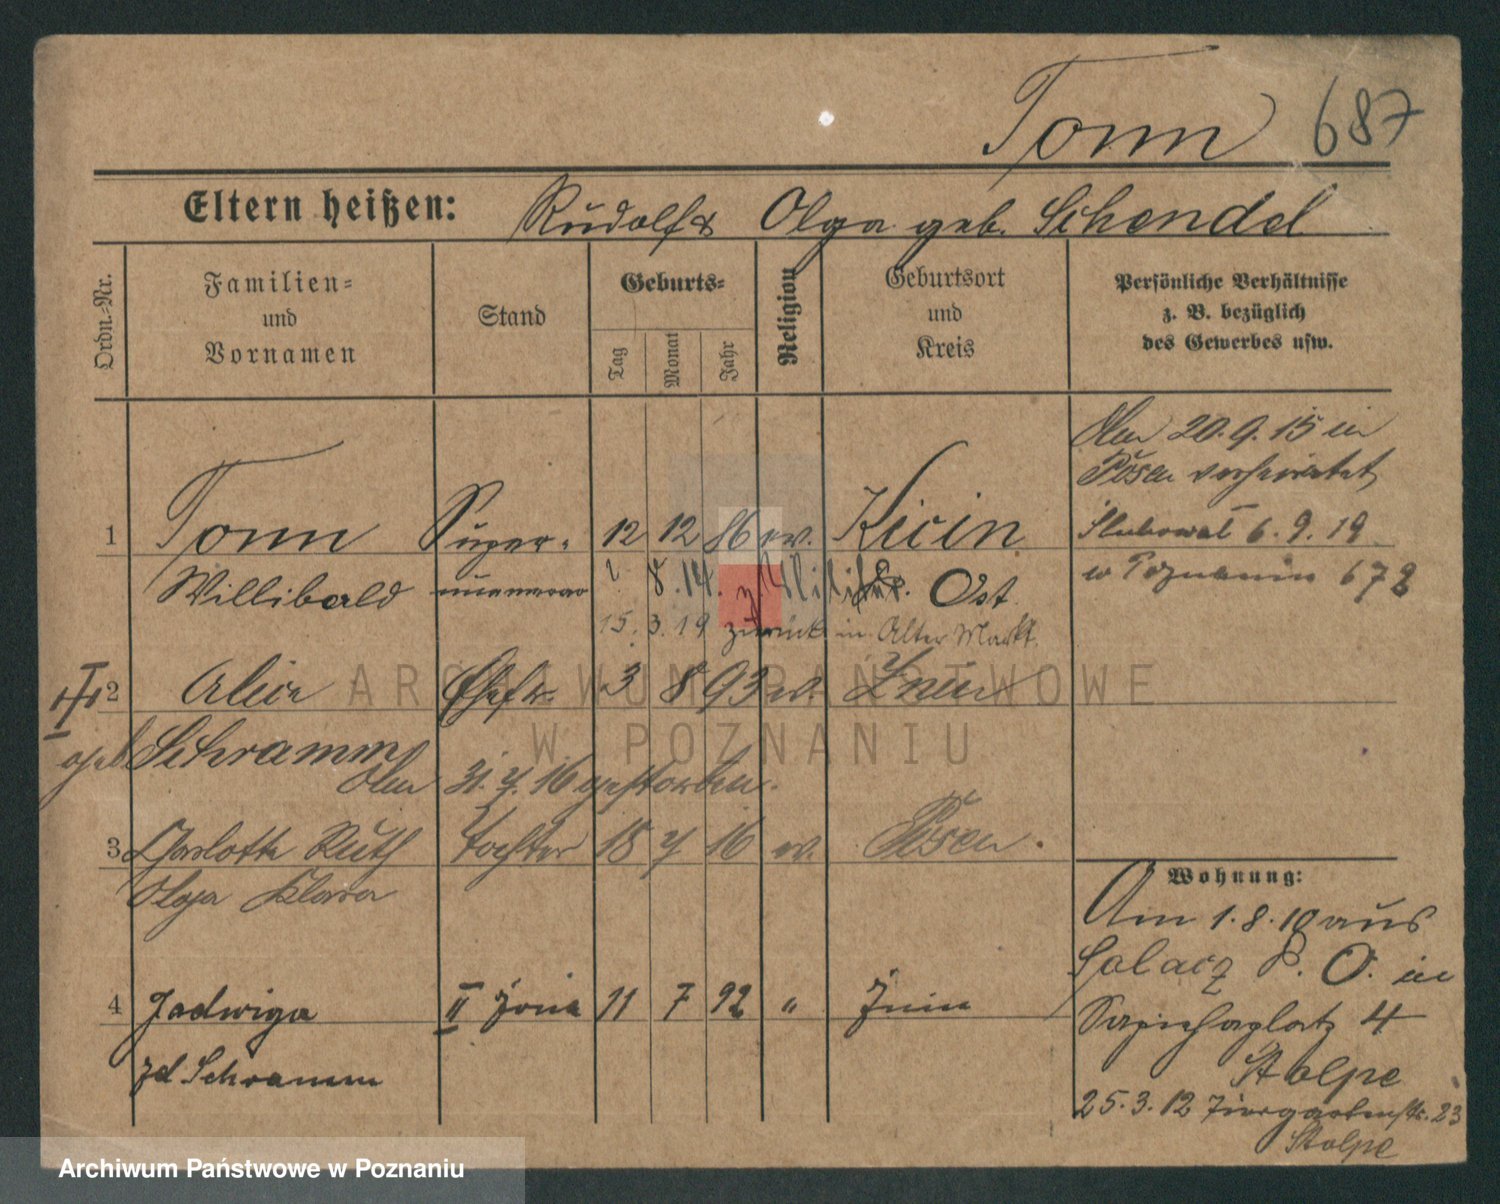 Tonn 687
Eltern heißen: Rudolf & Olga geb. Schendel
Ordn.-Nr.
Familien-
und
Vornamen
Stand
Geburts-
Tag
Monat
Jahr
Religion
Geburtsort
und
Kreis
Persönliche Verhältnisse
z. B. bezüglich
des Gewerbes usw.
Den 20.9.15 in
Posen verheiratet
Slubował 6.9.19
w Poznaniu 672
1 Tonn Super- 12 12 86 ev. Kicin
Willibald numerar Ost
8.14. z. Militär.
15.3.19 zurück in Alter Markt.
2 Alice Ehefr. 3 8 93 ev. Znin
geb. Schramm
Den 31.7.16 gestorben.
3 Charlotte Ruth Tochter 18 7 16 ev. Posen.
Olga Klara
4 Jadwiga II żona 11 7 92 " Żnin
zd Schramm
Wohnung:
Am 1.8.10 aus
Solacz P. O. in
Sapiehaplatz 4
Stolpe
25.3.12 Tiergartenstr. 23
Stolpe
ARCHIWUM PAŃSTWOWE
W POZNANIU
Archiwum Państwowe w Poznaniu